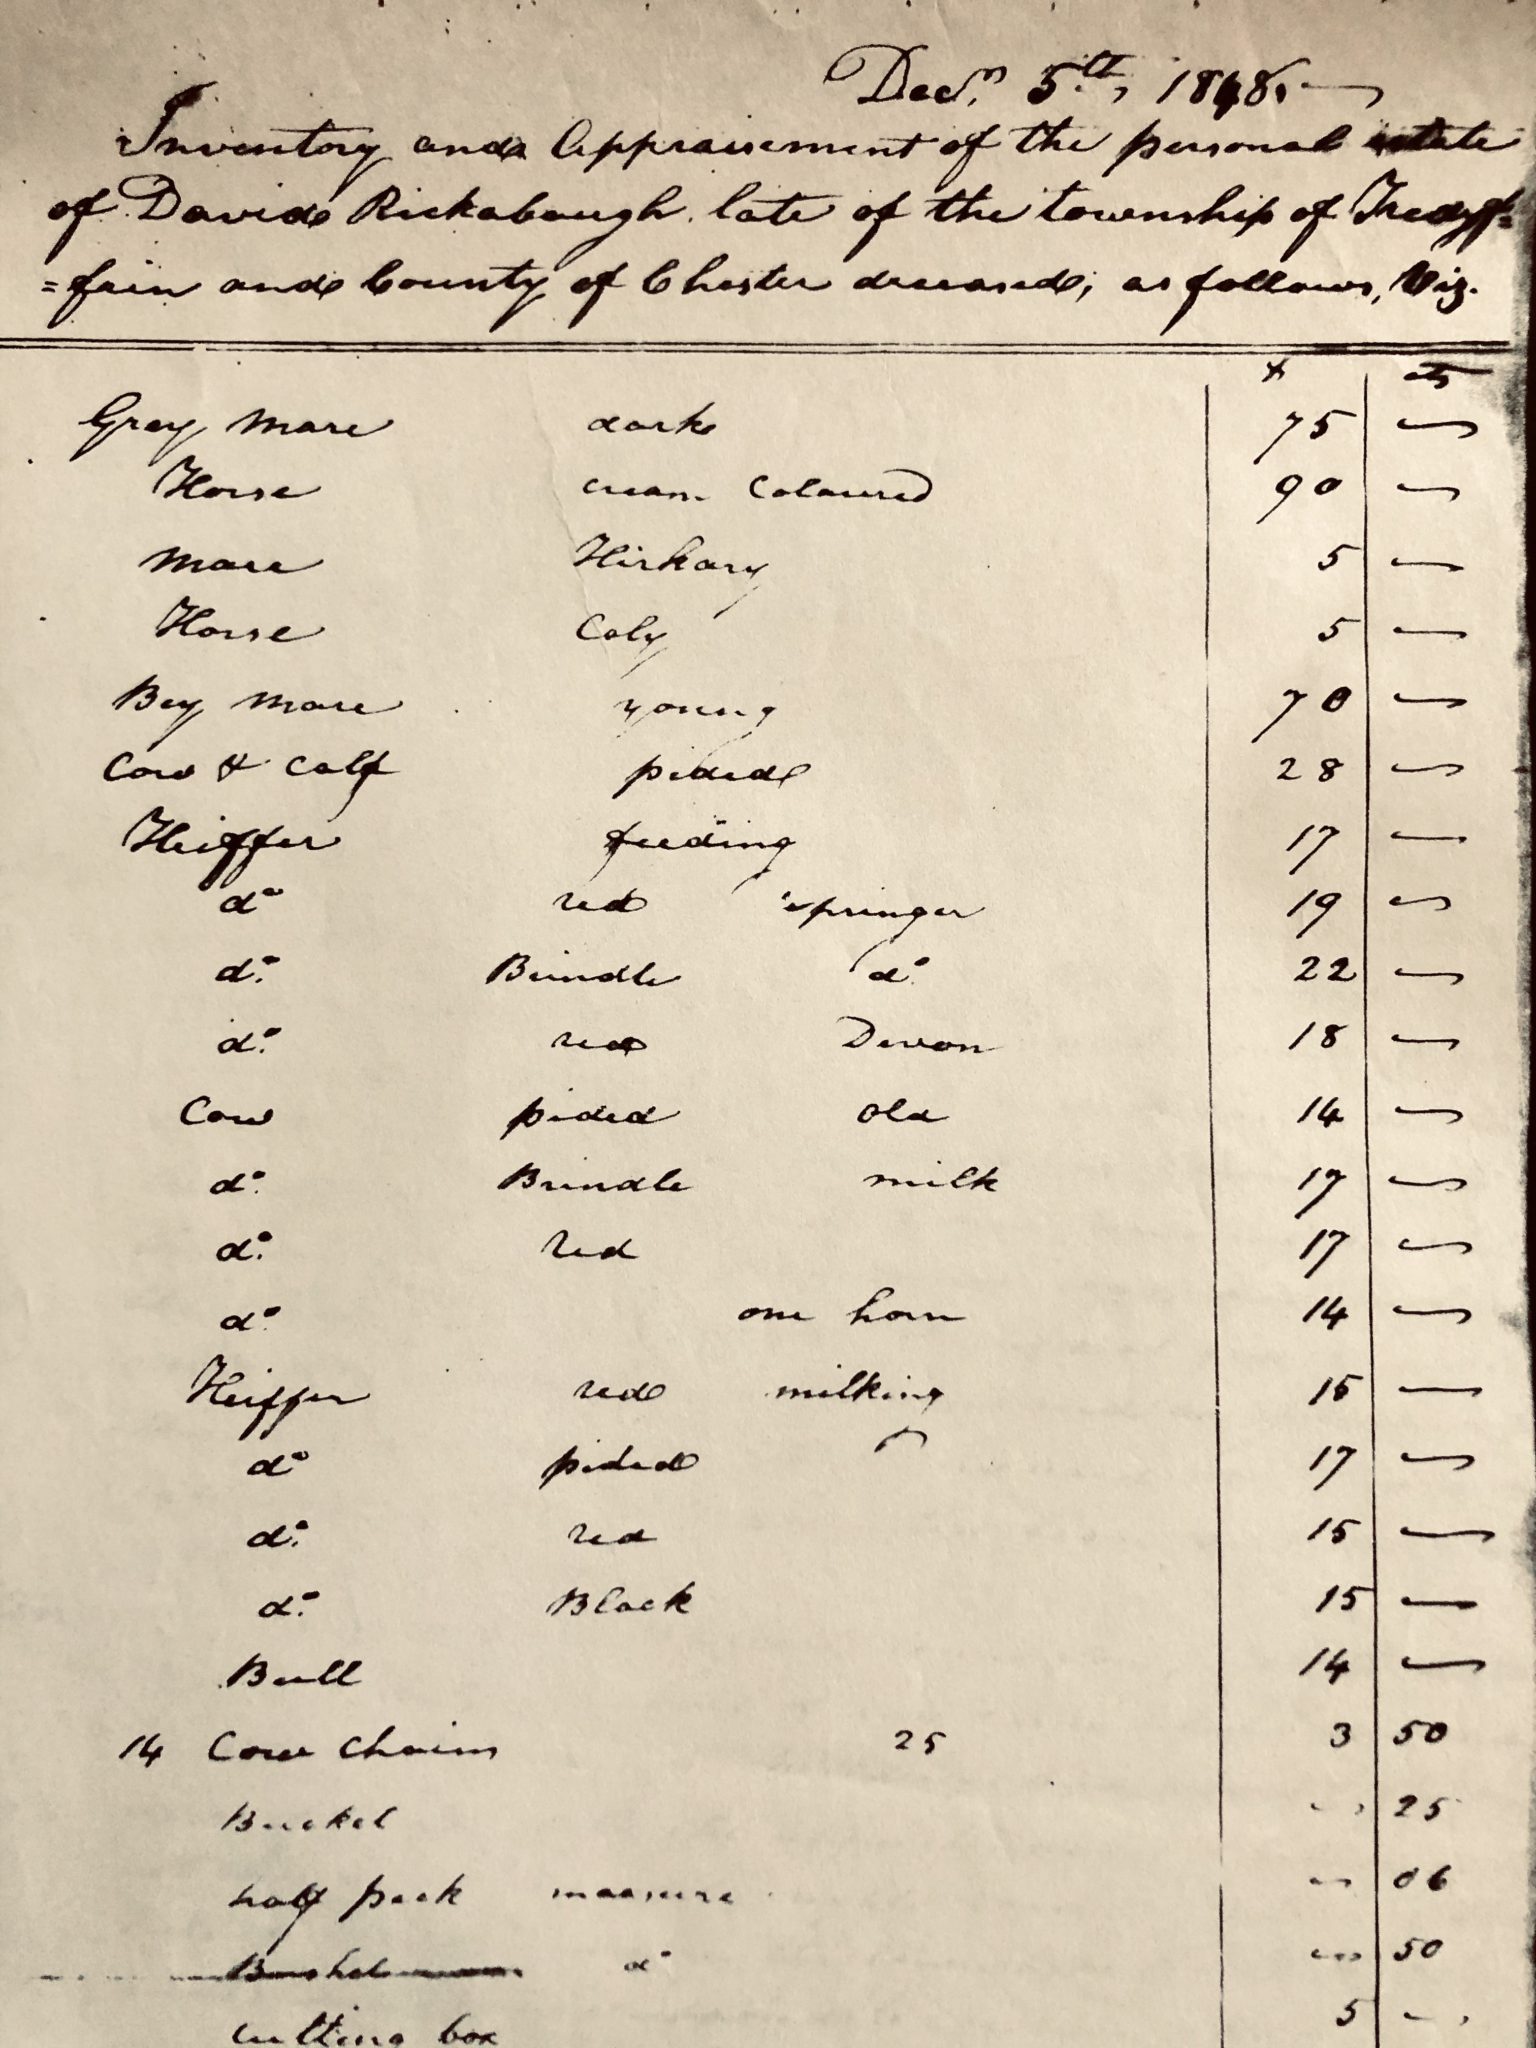 Decm. 5th, 1848.
Inventory and Appraisement of the personal estate
of David Rickabaugh late of the township of Tredyf=
=frin and County of Chester deceased, as follows, Viz.
$ cts
Gray Mare dark 75 —
Horse cream Coloured 90 —
Mare Hirkary 5 —
Horse Coly 5 —
Bey Mare young 70 —
Cow & Calf pided 28 —
Heiffer feeding 17 —
do red springer 19 —
do. Brindle do. 22 —
do. red Devon 18 —
Cow pided old 14 —
do. Brindle milk 17 —
do. red 17 —
do. one horn 14 —
Heiffer red milking 15 —
do pided 17 —
do. red 15 —
do. Black 15 —
Bull 14 —
14 Cow Chains 25 3 50
Bucket — 25
half peck measure — 06
Bushel do — 50
cutting box 5 —